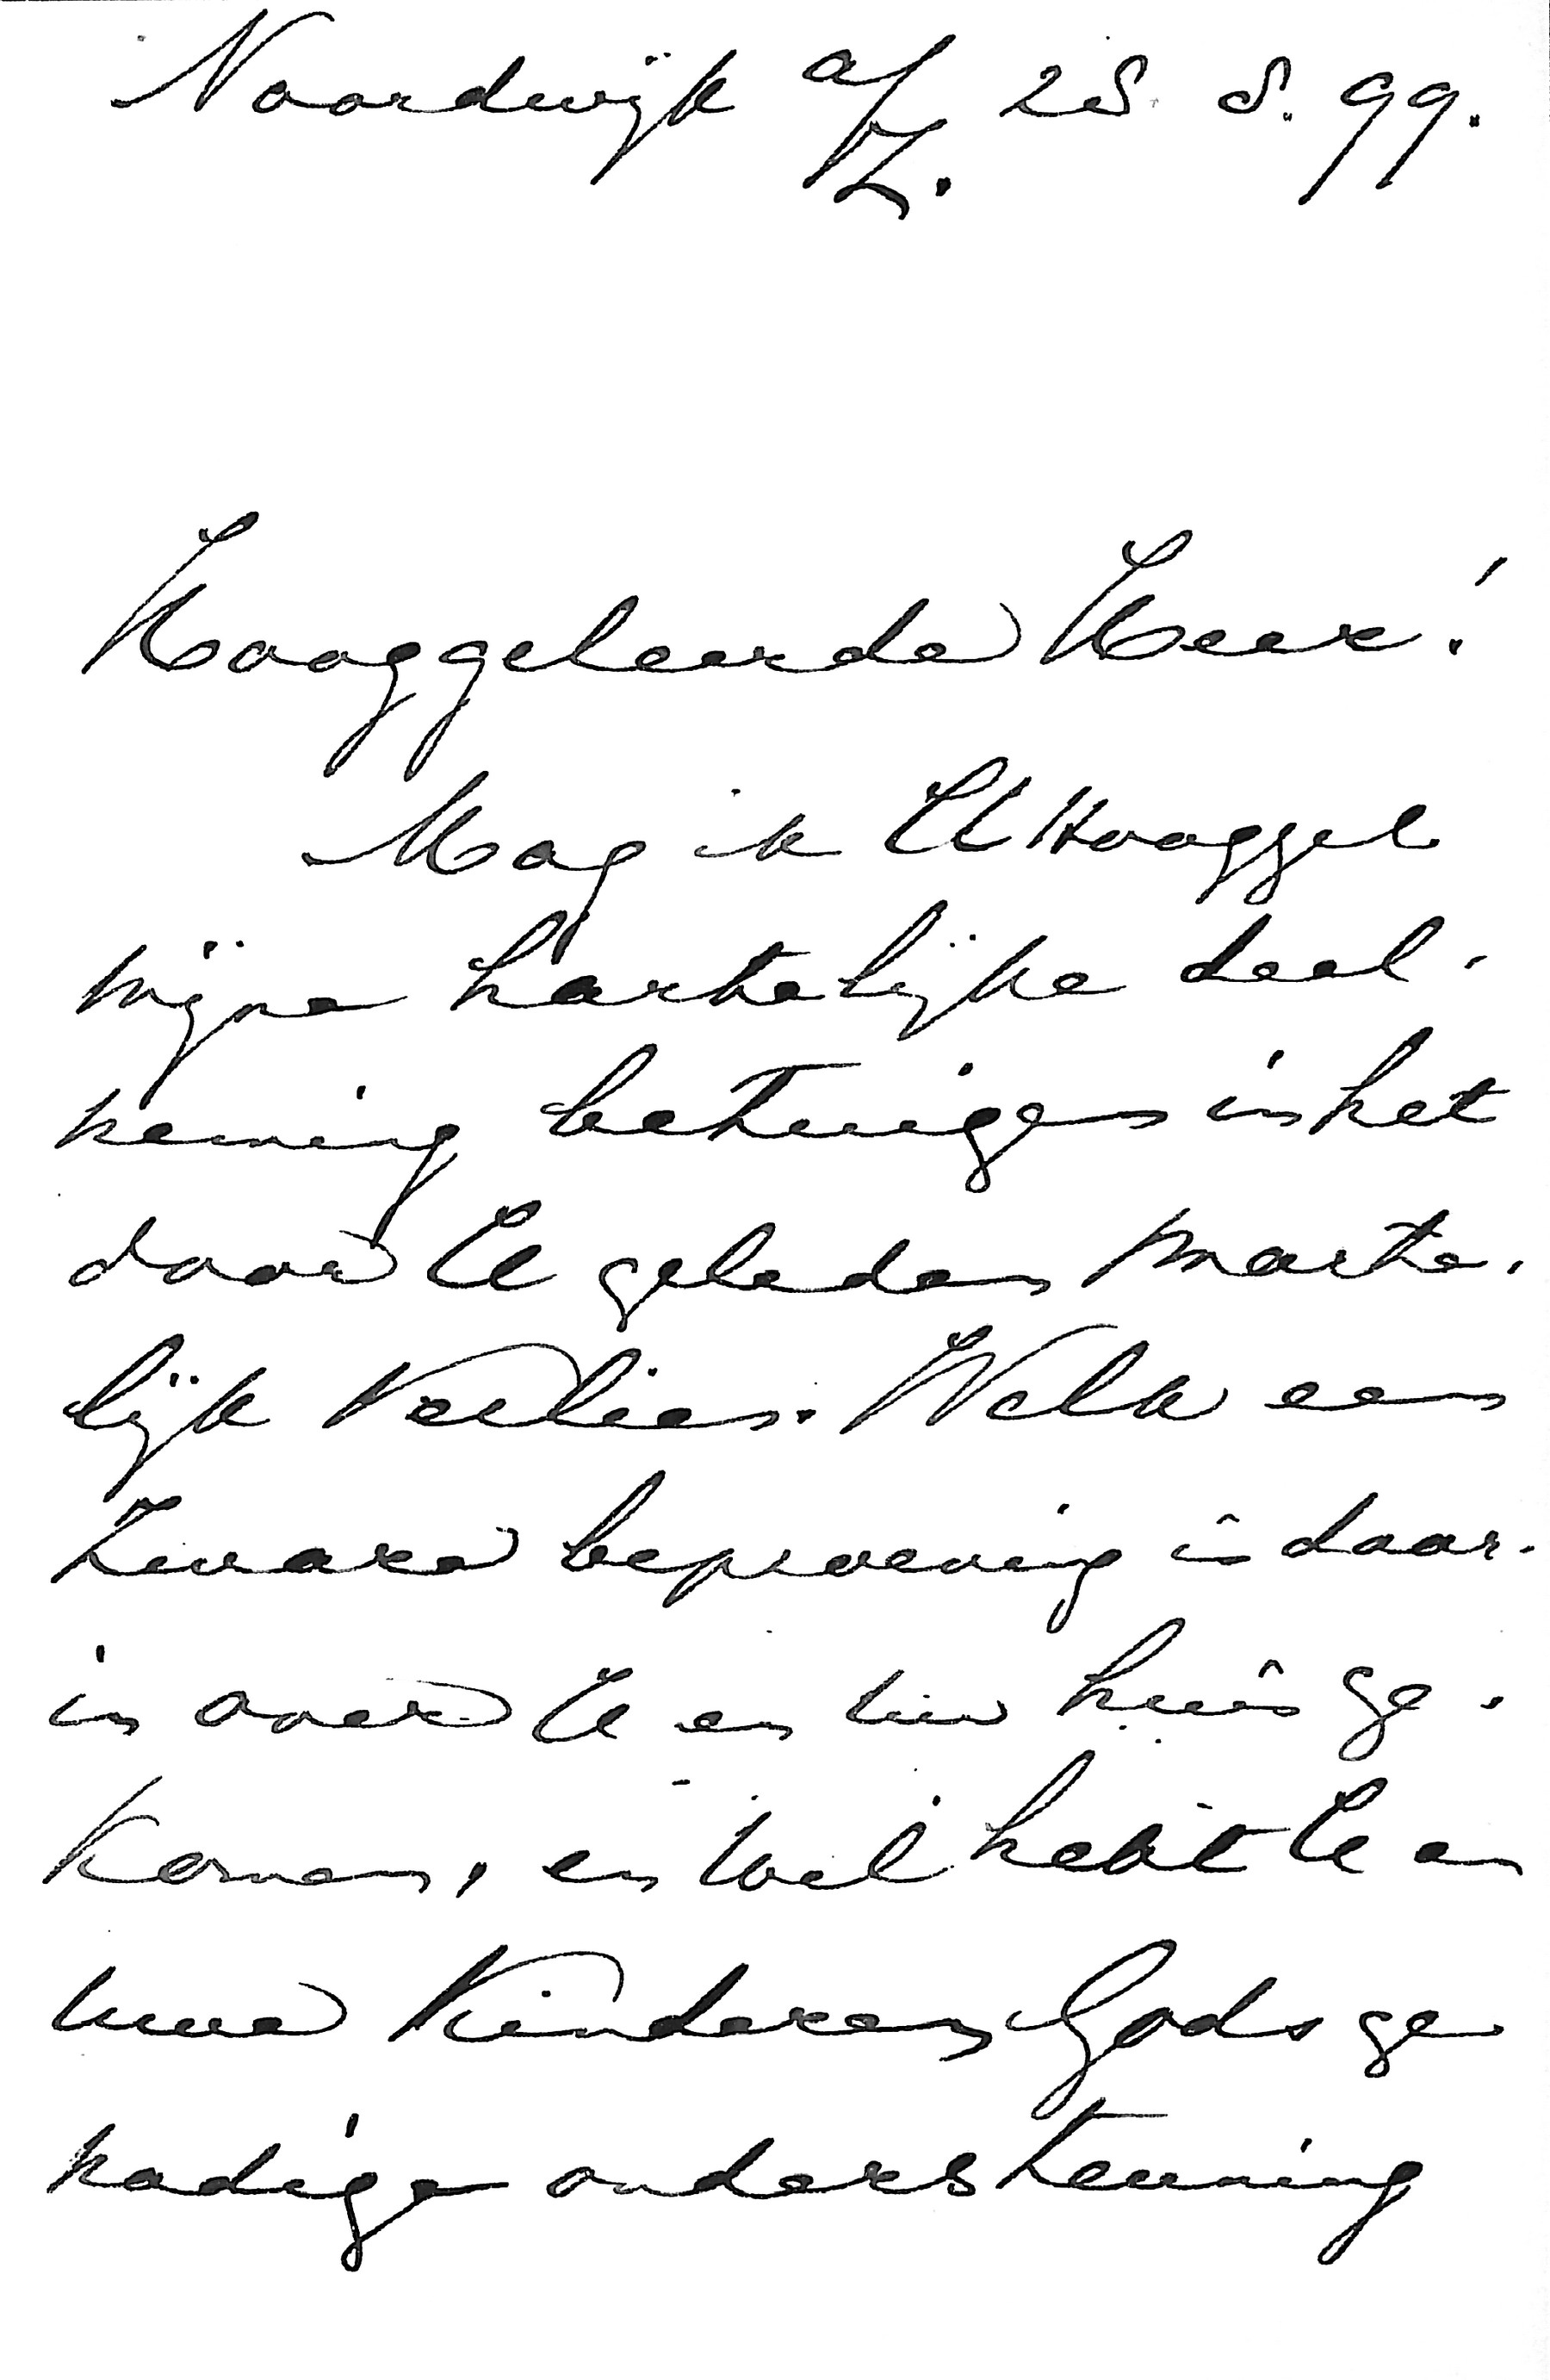 Noordwijk a/Z. 28. 8. 99.
Hooggeleerde Heer!
Mag ik UHooggel
mijne hartelijke deel-
neming betuigen in het
door U geleden smarte-
lijk verlies. Welk een
zware beproeving is daar-
in over U en uw huis ge-
komen, en wel hebt U en
uwe kinderen Gods ge
nadige ondersteuning